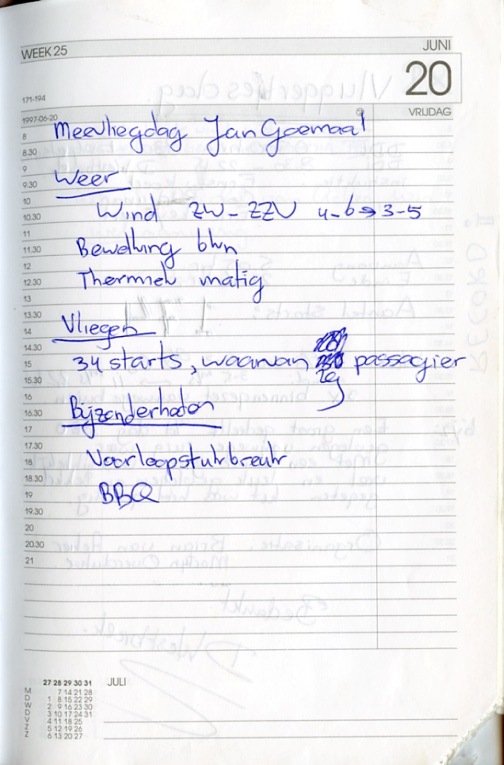 WEEK 25
JUNI
20
171-194
VRIJDAG
1997-06-20
8
Meevliegdag Jan Goemaal
8.30
9
Weer
9.30
10
Wind ZW - ZZW 4-6 → 3-5
10.30
11
Bewolking bkn
11.30
12
Thermiek matig
12.30
13
13.30
Vliegen
14
14.30
34 starts, waarvan passagier
15
15.30
16
Bijzonderheden
16.30
17
17.30
Voorloopstukbreuk
18
18.30
BBQ
19
19.30
20
20.30
21
27 28 29 30 31 JULI
M 7 14 21 28
D 1 8 15 22 29
W 2 9 16 23 30
D 3 10 17 24 31
V 4 11 18 25
Z 5 12 19 26
Z 6 13 20 27